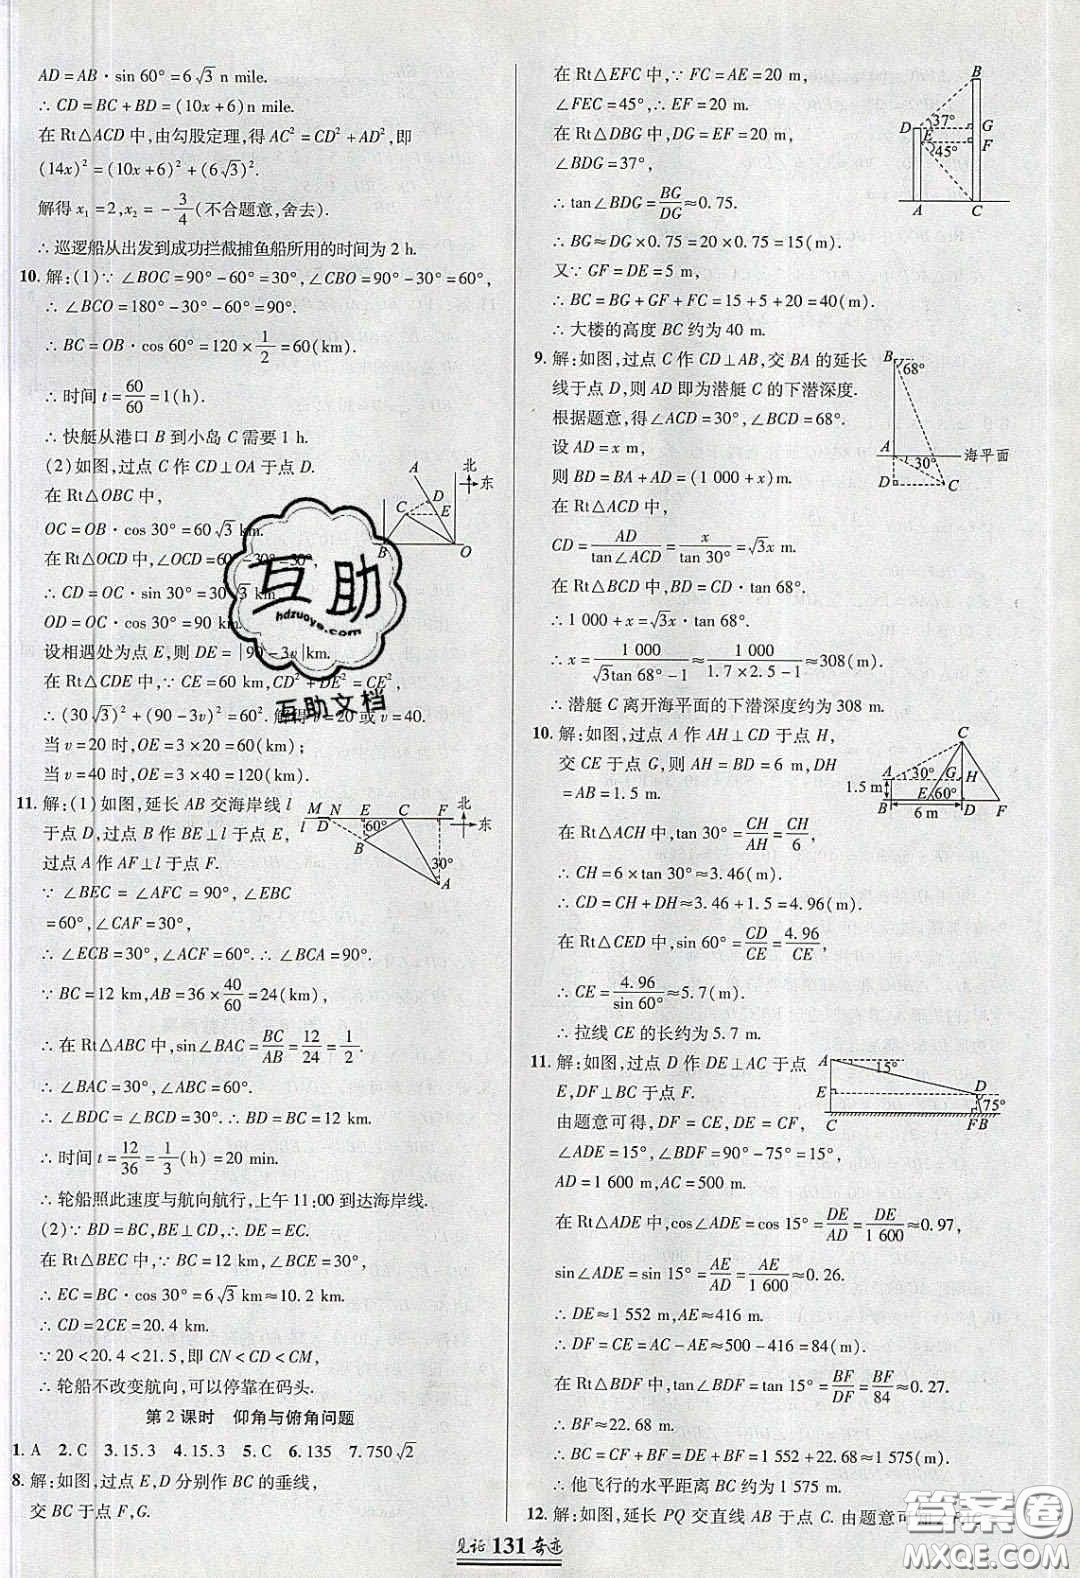 AD=AB·sin 60°=6√3 n mile.
∴CD=BC+BD=(10x+6)n mile.
在 Rt△ACD 中,由勾股定理,得 AC²=CD²+AD²,即
(14x)²=(10x+6)²+(6√3)².
解得 x₁=2,x₂=-3/4(不合题意,舍去).
∴巡逻船从出发到成功拦截捕鱼船所用的时间为 2 h.
10. 解:(1)∵∠BOC=90°-60°=30°,∠CBO=90°-30°=60°,
∴∠BCO=180°-30°-60°=90°.
∴BC=OB·cos 60°=120×1/2=60(km).
∴时间 t=60/60=1(h).
∴快艇从港口 B 到小岛 C 需要 1 h.
(2)如图,过点 C 作 CD⊥OA 于点 D.
在 Rt△OBC 中,
OC=OB·cos 30°=60√3 km.
在 Rt△OCD 中,∠OCD=60°-30°=30°,
∴CD=OC·sin 30°=30√3 km.
OD=OC·cos 30°=90 km.
设相遇处为点 E,则 DE=|90-3v|km.
在 Rt△CDE 中,∵CE=60 km,CD²+DE²=CE²,
∴(30√3)²+(90-3v)²=60². 解得 v=20 或 v=40.
当 v=20 时,OE=3×20=60(km);
当 v=40 时,OE=3×40=120(km).
A 北 东 D C E B O
11. 解:(1)如图,延长 AB 交海岸线 l
于点 D,过点 B 作 BE⊥l 于点 E,
过点 A 作 AF⊥l 于点 F.
∵∠BEC=∠AFC=90°,∠EBC
=60°,∠CAF=30°,
∴∠ECB=30°,∠ACF=60°.∴∠BCA=90°.
∵BC=12 km,AB=36×40/60=24(km),
∴在 Rt△ABC 中,sin∠BAC=BC/AB=12/24=1/2.
∴∠BAC=30°,∠ABC=60°.
∴∠BDC=∠BCD=30°.∴BD=BC=12 km.
∴时间 t=12/36=1/3(h)=20 min.
∴轮船照此速度与航向航行,上午 11:00 到达海岸线.
(2)∵BD=BC,BE⊥CD,∴DE=EC.
在 Rt△BEC 中,∵BC=12 km,∠BCE=30°,
∴EC=BC·cos 30°=6√3≈10.2 km.
∴CD=2CE=20.4 km.
∵20<20.4<21.5,即 CN<CD<CM,
∴轮船不改变航向,可以停靠在码头.
M N E C F 北 东
l D 60° B 30° A
第 2 课时 仰角与俯角问题
1. A 2. C 3. 15.3 4. 15.3 5. C 6. 135 7. 750√2
8. 解:如图,过点 E,D 分别作 BC 的垂线,
交 BC 于点 F,G.
在 Rt△EFC 中,∵FC=AE=20 m,
∠FEC=45°,∴EF=20 m.
在 Rt△DBG 中,DG=EF=20 m,
∠BDG=37°,
∴tan∠BDG=BG/DG≈0.75.
∴BG≈DG×0.75=20×0.75=15(m).
又∵GF=DE=5 m,
∴BC=BG+GF+FC=15+5+20=40(m).
∴大楼的高度 BC 约为 40 m.
B D 37° G E 45° F A C
9. 解:如图,过点 C 作 CD⊥AB,交 BA 的延长
线于点 D,则 AD 即为潜艇 C 的下潜深度.
根据题意,得∠ACD=30°,∠BCD=68°.
设 AD=x m,
则 BD=BA+AD=(1 000+x)m.
在 Rt△ACD 中,
CD=AD/tan∠ACD=x/tan 30°=√3x m.
在 Rt△BCD 中,BD=CD·tan 68°.
∴1 000+x=√3x·tan 68°.
∴x=1 000/(√3tan 68°-1)≈1 000/(1.7×2.5-1)≈308(m).
∴潜艇 C 离开海平面的下潜深度约为 308 m.
B 68° A 海平面 30° D C
10. 解:如图,过点 A 作 AH⊥CD 于点 H,
交 CE 于点 G,则 AH=BD=6 m,DH
=AB=1.5 m.
在 Rt△ACH 中,tan 30°=CH/AH=CH/6,
∴CH=6×tan 30°≈3.46(m).
∴CD=CH+DH≈3.46+1.5=4.96(m).
在 Rt△CED 中,sin 60°=CD/CE=4.96/CE,
∴CE=4.96/sin 60°≈5.7(m).
∴拉线 CE 的长约为 5.7 m.
C A 30° G H 1.5 m 60° B E D F 6 m
11. 解:如图,过点 D 作 DE⊥AC 于点
E,DF⊥BC 于点 F.
由题意可得,DF=CE,DE=CF,
∠ADE=15°,∠BDF=90°-75°=15°,
AD=1 600 m,AC=500 m.
在 Rt△ADE 中,cos∠ADE=cos 15°=DE/AD=DE/1 600≈0.97,
sin∠ADE=sin 15°=AE/AD=AE/1 600≈0.26.
∴DE≈1 552 m,AE≈416 m.
∴DF=CE=AC-AE≈500-416=84(m).
在 Rt△BDF 中,tan∠BDF=tan 15°=BF/DF=BF/84≈0.27.
∴BF≈22.68 m.
∴BC=CF+BF=DE+BF≈1 552+22.68≈1 575(m).
∴他飞行的水平距离 BC 约为 1 575 m.
A 15° E D 75° C FB
12. 解:如图,延长 PQ 交直线 AB 于点 C. 由题意可
见证 131 奇迹
互助
hdzuoye.com
互助文档
答案圈
MXQE.COM